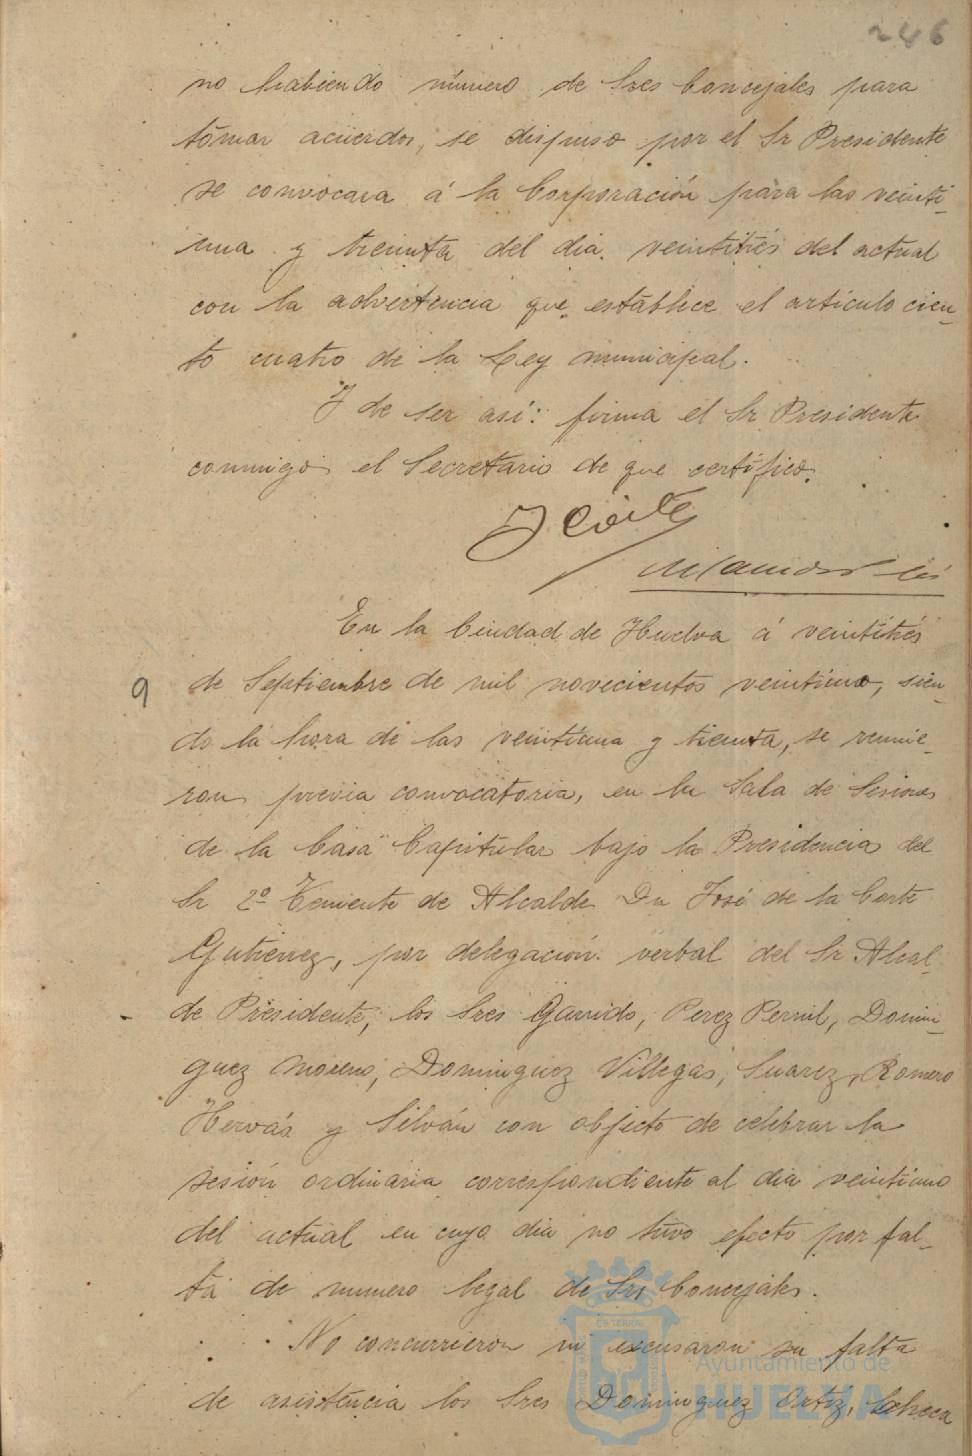 246
no habiendo número de Sres Concejales para
tomar acuerdos, se dispuso por el Sr Presidente
se convocara á la Corporación para las veinti-
una y treinta del dia veintitrés del actual
con la advertencia que establece el artículo cien-
to cuatro de la Ley municipal.
Y de ser así: firma el Sr Presidente
conmigo el Secretario de que certifico.
J Corte
En la Ciudad de Huelva á veintitrés
9 de Septiembre de mil novecientos veintiuno, sien-
do la hora de las veintiuna y treinta, se reunie-
ron previa convocatoria, en la Sala de Sesiones
de la Casa Capitular bajo la Presidencia del
Sr 2º Teniente de Alcalde Dn José de la Corte
Gutierrez, por delegación verbal del Sr Alcal-
de Presidente, los Sres Garrido, Perez Pernil, Domin-
guez Moreno, Dominguez Villegas, Suarez, Romero
Hervás y Silván con objecto de celebrar la
sesión ordinaria correspondiente al dia veintiuno
del actual en cuyo dia no tuvo efecto por fal-
ta de numero legal de Srs Concejales.
No concurrieron ni excusaron su falta
de asistencia los Sres Dominguez Ortiz, Checa
Ayuntamiento de
HUELVA